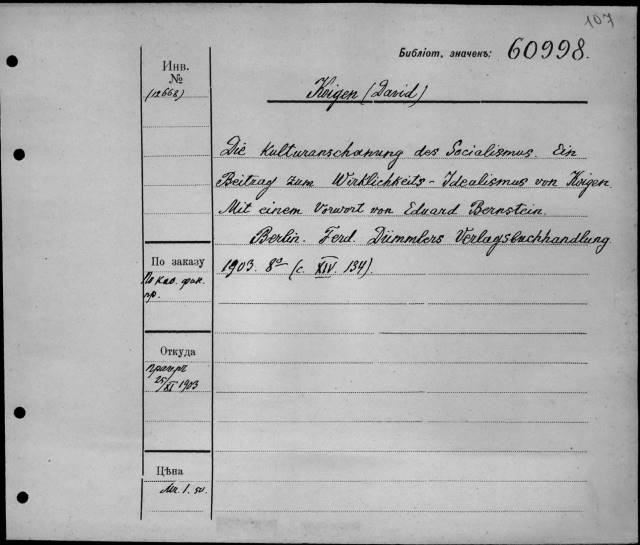 107
Библіот. значекъ: 60998.
Инв.
№
(12668)
Koigen (David)
Die Kulturanschauung des Socialismus. Ein
Beitrag zum Wirklichkeits-Idealismus von Koigen.
Mit einem Vorwort von Eduard Bernstein.
Berlin. Ferd. Dümmlers Verlagsbuchhandlung
1903. 8º (c. XIV. 134).
По заказу
По каб. фин.
пр.
Откуда
25/XI 1903
Цѣна
Мк. 1.50.